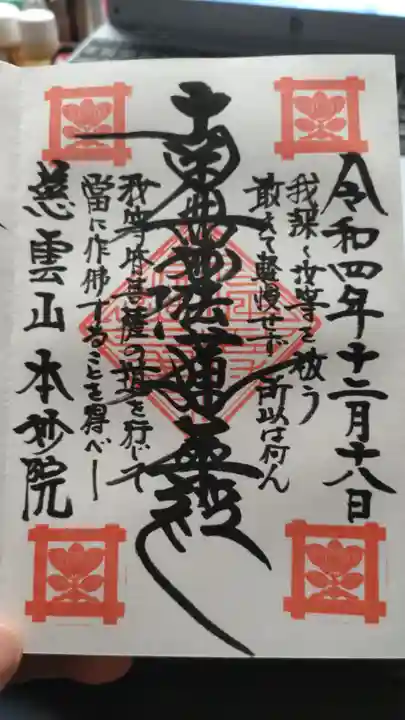 令和四年十二月十八日
我深く汝等を敬う
敢えて軽慢せず所以は何ん
南無妙法蓮華経
汝等皆菩薩の道を行じて
當に作佛することを得べし
慈雲山本妙院